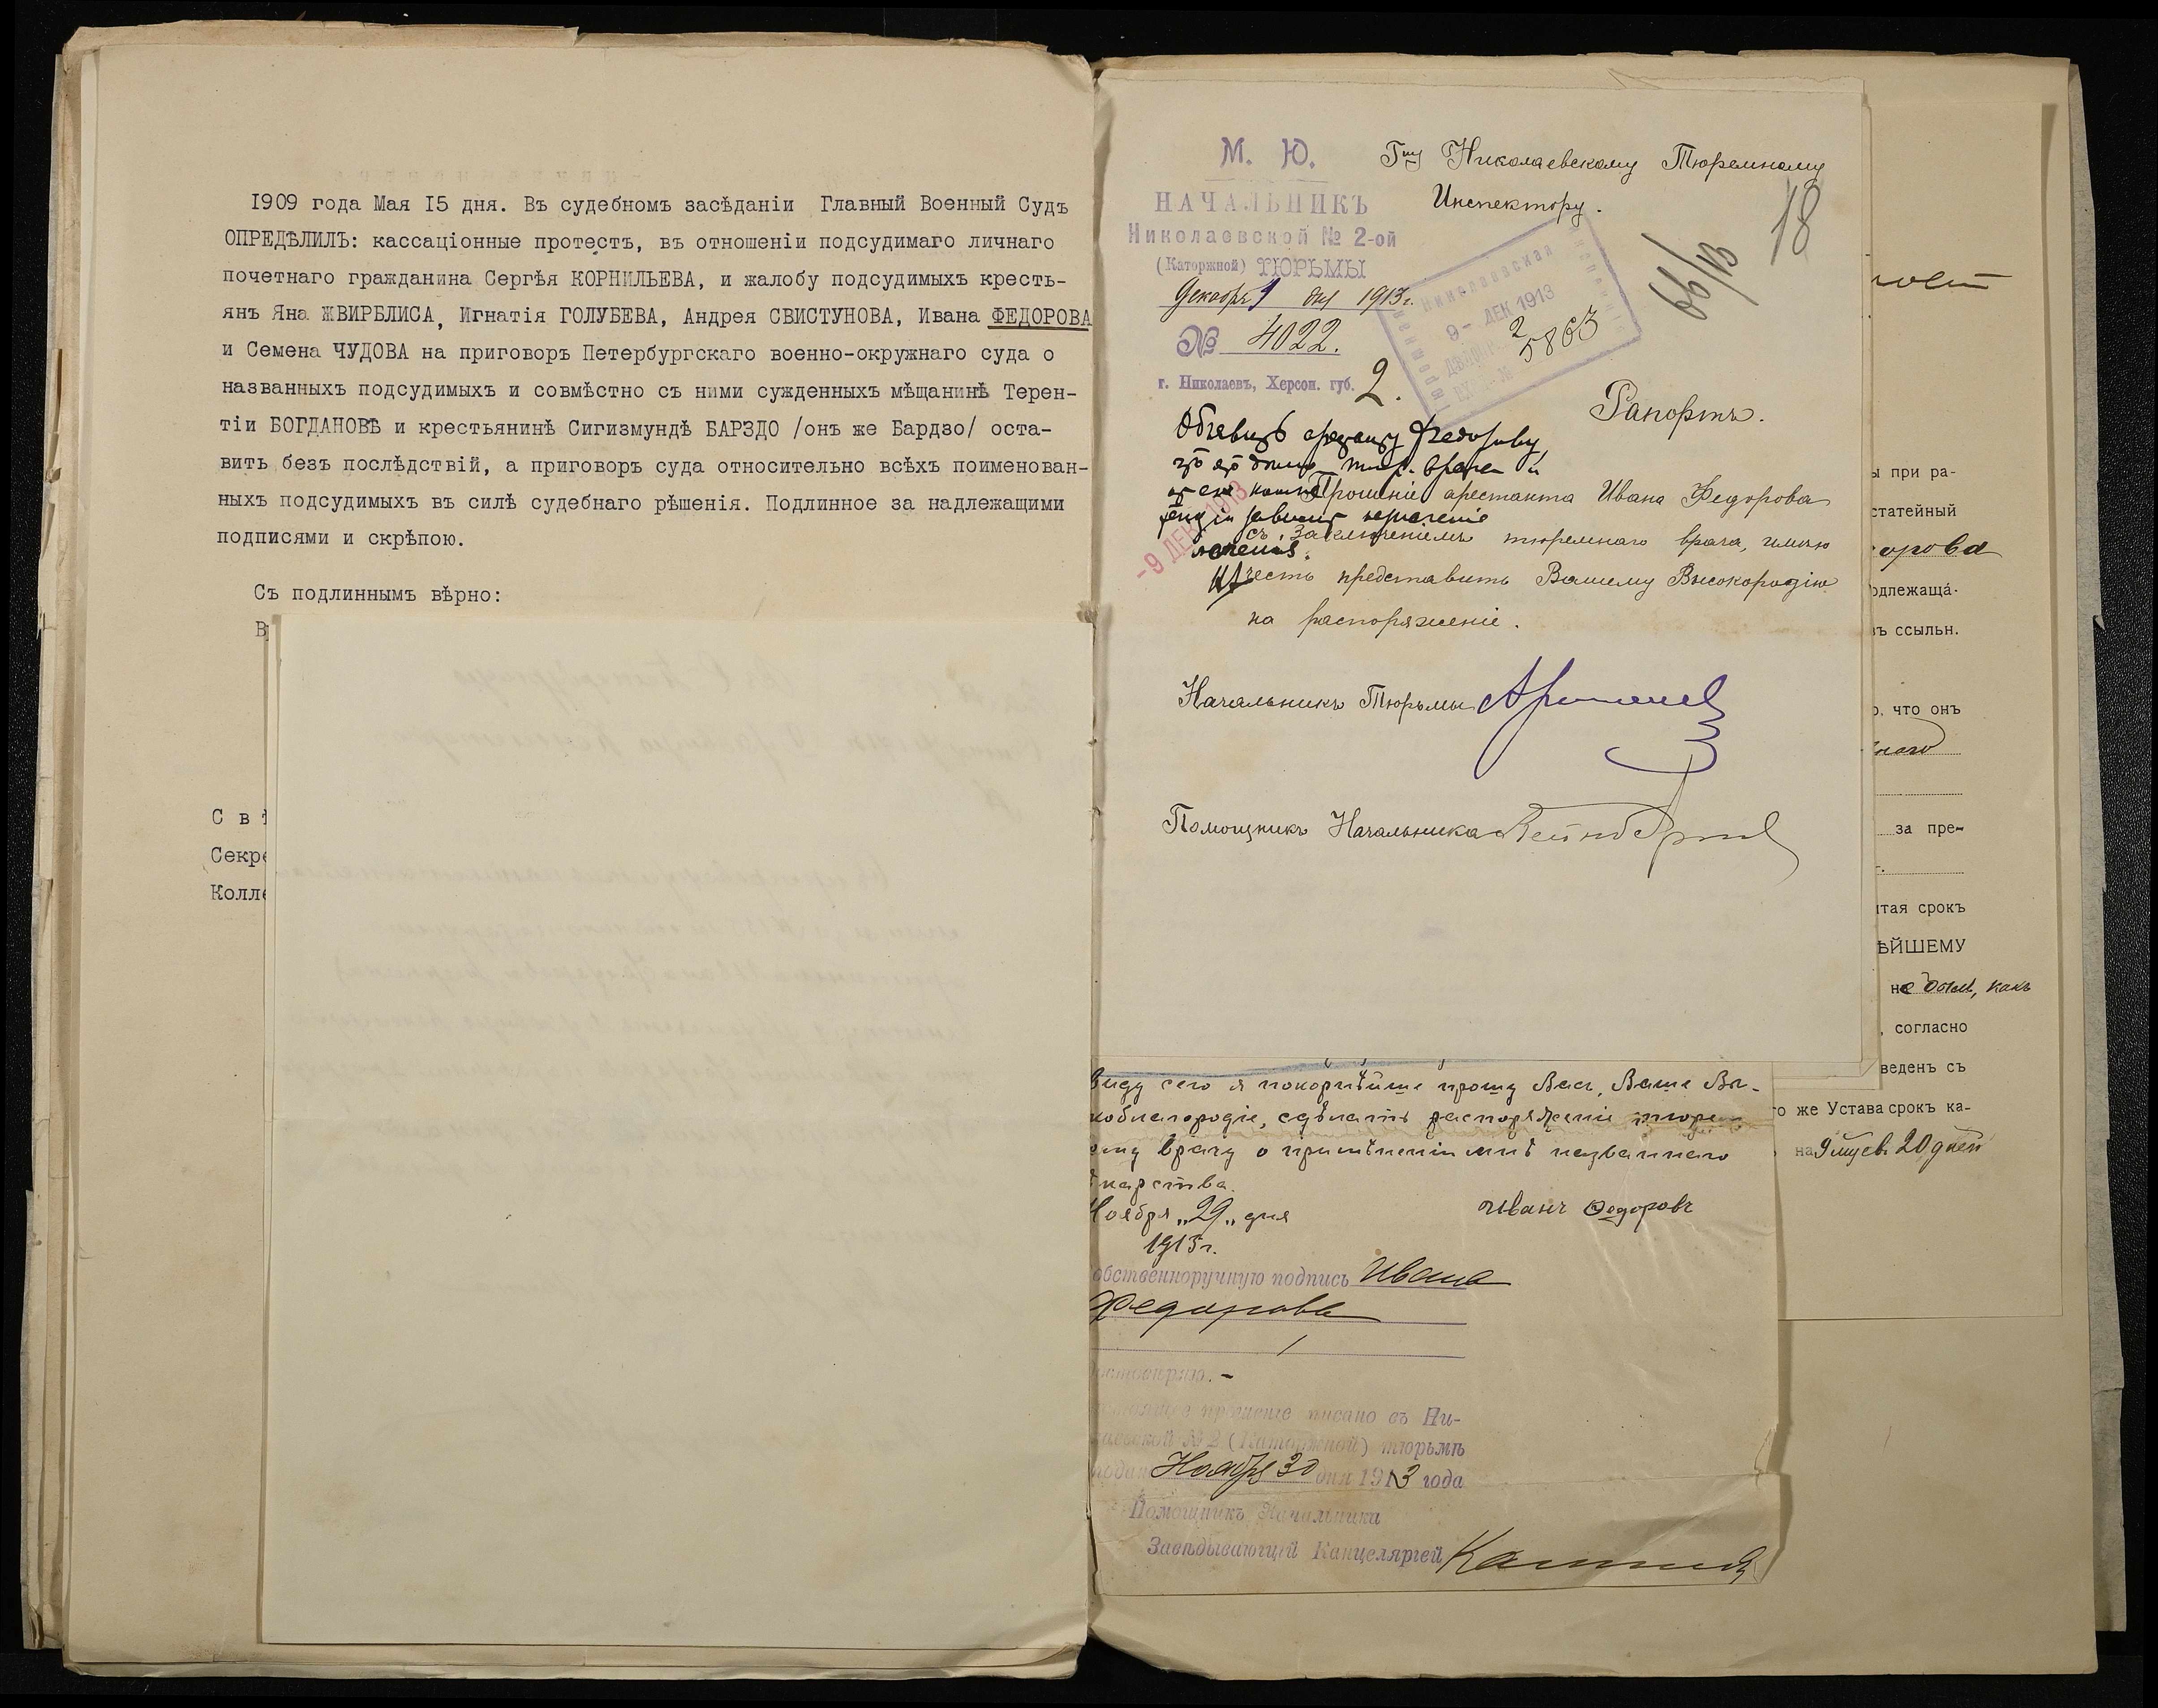 1909 года Мая 15 дня. Въ судебномъ засѣданіи Главный Военный Судъ
ОПРЕДѢЛИЛЪ: кассаціонные протестъ, въ отношеніи подсудимаго личнаго
почетнаго гражданина Сергѣя КОРНИЛЬЕВА, и жалобу подсудимыхъ кресть-
янъ Яна ЖВИРБЛИСА, Игнатія ГОЛУБЕВА, Андрея СВИСТУНОВА, Ивана ФЕДОРОВА
и Семена ЧУДОВА на приговоръ Петербургскаго военно-окружнаго суда о
названныхъ подсудимыхъ и совмѣстно съ ними сужденныхъ мѣщанинѣ Терен-
тіи БОГДАНОВѢ и крестьянинѣ Сигизмундѣ БАРЗДО /онъ же Бардзо/ оста-
вить безъ послѣдствій, а приговоръ суда относительно всѣхъ поименован-
ныхъ подсудимыхъ въ силѣ судебнаго рѣшенія. Подлинное за надлежащими
подписями и скрѣпою.
Съ подлиннымъ вѣрно:
С в ѣ
Секре
Колле
М. Ю.
НАЧАЛЬНИКЪ
Николаевской № 2-ой
(Каторжной) ТЮРЬМЫ
Декабря 9 дня 1913 г.
№ 4022.
г. Николаевъ, Херсон. губ.
2.
Гну Николаевскому Тюремному
Инспектору.
18
66/13
Николаевская
9 - ДЕК 1913
2
5863
Рапортъ.
Объявить арестанту Федорову
-9 ДЕК 1913
Прошеніе арестанта Ивана Федорова
съ заключеніемъ тюремнаго врача, имѣю
честь представить Вашему Высокородію
на распоряженіе.
Начальникъ Тюрьмы
Помощникъ Начальника
виду сего я покорнѣйше прошу Васъ, Ваше Вы-
коблагородіе, сдѣлать распоряженіе тюрем
ому врачу о примѣненіи мнѣ названнаго
карства.
Ноября „29„ дня
1913 г.
Иванъ Федоровъ
обственноручную подпись Ивана
Федорова
прошеніе писано въ Ни-
лаевской № 2 (Каторжной) тюрьмѣ
подан Ноября 30 дня 1913 года
Помощникъ Начальника
Завѣдывающій Канцеляріей
ы при ра-
статейный
орова
одлежаща-
въ ссыльн.
о, что онъ
за пре-
итая срокъ
ѢЙШЕМУ
не былъ, какъ
, согласно
веденъ съ
го же Устава срокъ ка-
на 9 мцевъ 20 дней